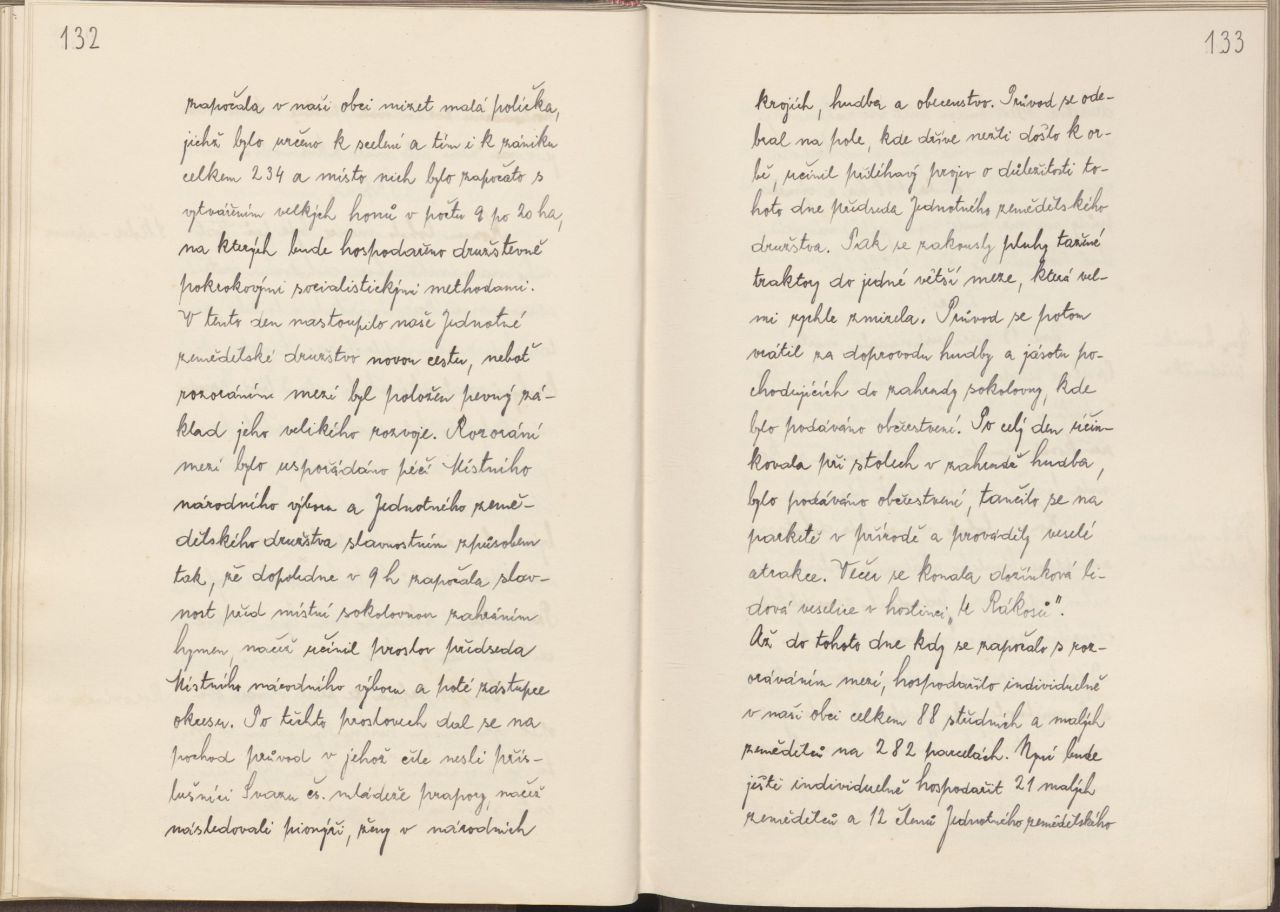 132
započala v naší obci mizet malá políčka,
jichž bylo určeno k scelení a tím i k zániku
celkem 234 a místo nich bylo započato s
vytvářením velkých honů v počtu 9 po 20 ha,
na kterých bude hospodařeno družstevně
pokrokovými socialistickými methodami.
V tento den nastoupilo naše Jednotné
zemědělské družstvo novou cestu, neboť
rozoráním mezí byl položen pevný zá-
klad jeho velikého rozvoje. Rozorání
mezí bylo uspořádáno péčí Místního
národního výboru a Jednotného země-
dělského družstva slavnostním způsobem
tak, že dopoledne v 9 h započala slav-
nost před místní sokolovnou zahráním
hymen, načež učinil proslov předseda
Místního národního výboru a poté zástupce
okresu. Po těchto proslovech dal se na
pochod průvod v jehož čele nesli přís-
lušníci Svazu čs. mládeže prapory, načež
následovali pionýři, ženy v národních
133
krojích, hudba a obecenstvo. Průvod se ode-
bral na pole, kde dříve nežli došlo k or-
bě, učinil přiléhavý projev o důležitosti to-
hoto dne předseda Jednotného zemědělského
družstva. Pak se zakously pluhy tažené
traktory do jedné větší meze, která vel-
mi rychle zmizela. Průvod se potom
vrátil za doprovodu hudby a jásotu po-
chodujících do zahrady sokolovny, kde
bylo podáváno občerstvení. Po celý den účin-
kovala při stolech v zahradě hudba,
bylo podáváno občerstvení, tančilo se na
parketě v přírodě a prováděly veselé
atrakce. Večer se konala dožínková li-
dová veselice v hostinci „U Rákosů".
Až do tohoto dne kdy se započalo s roz-
oráváním mezí, hospodařilo individuelně
v naší obci celkem 88 středních a malých
zemědělců na 282 parcelách. Nyní bude
ještě individuelně hospodařit 21 malých
zemědělců a 12 členů Jednotného zemědělského